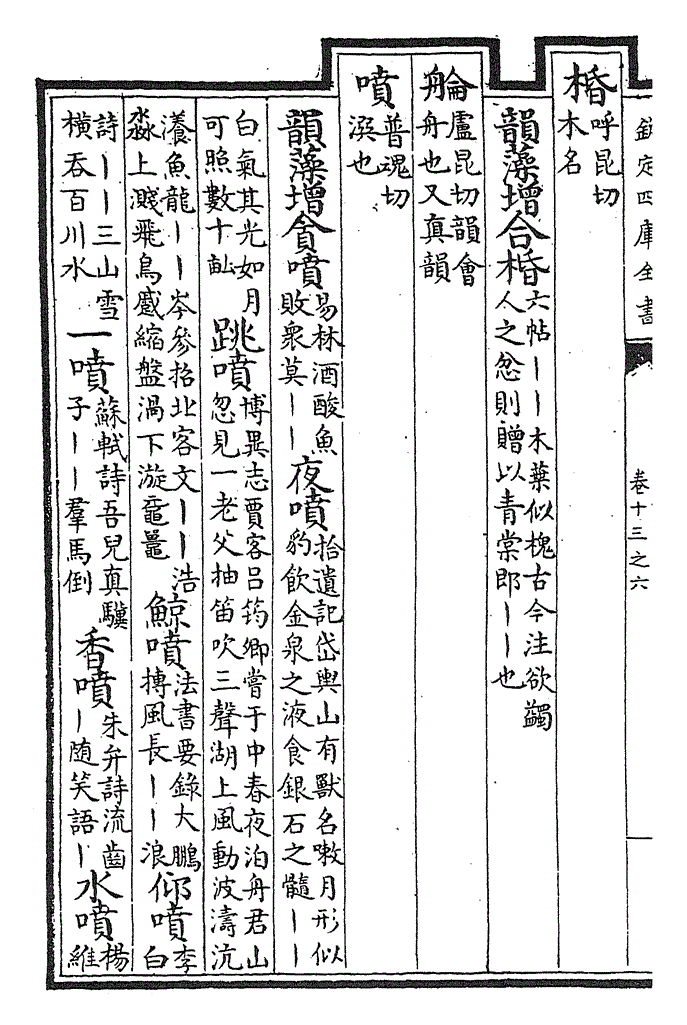 欽定四庫全書
卷十三之六
棔
呼昆切
木名
韻藻增合棔
六帖丨丨木葉似槐古今注欲蠲
人之忿則贈以青棠即丨丨也
䑳
盧昆切韻會
舟也又真韻
噴
普魂切
潠也
韻藻增貪噴
易林酒酸魚
敗衆莫丨丨
夜噴
拾遺記岱輿山有獸名嗽月形似
豹飲金泉之液食銀石之髓丨丨
白氣其光如月
可照數十畝
跳噴
博異志賈客吕筠卿嘗于中春夜泊舟君山
忽見一老父抽笛吹三聲湖上風動波濤沆
瀁魚龍丨丨岑參招北客文丨丨浩
淼上濺飛鳥蹙縮盤渦下漩黿鼉
鯨噴
法書要錄大鵬
摶風長丨丨浪
仰噴
李
白
詩丨丨三山雪
橫吞百川水
一噴
蘇軾詩吾兒真驥
子丨丨羣馬倒
香噴
朱弁詩流齒
丨随笑語丨
水噴
楊
維